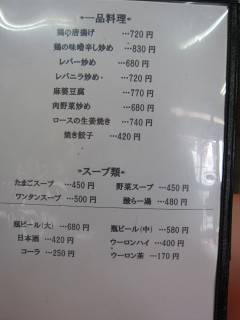 ◦一品料理◦
鶏の唐揚げ …720 円
鶏の味噌辛し炒め …830 円
レバー炒め …680 円
レバニラ炒め・ …720 円
麻婆豆腐 …770 円
肉野菜炒め …680 円
ロースの生姜焼き …740 円
焼き餃子 …420 円
◦スープ類◦
たまごスープ …450 円 野菜スープ …450 円
ワンタンスープ …500 円 酸らー湯 …480 円
瓶ビール(大) …680 円 瓶ビール(中) …580 円
日本酒 …420 円 ウーロンハイ …400 円
コーラ …250 円 ウーロン茶 …170 円